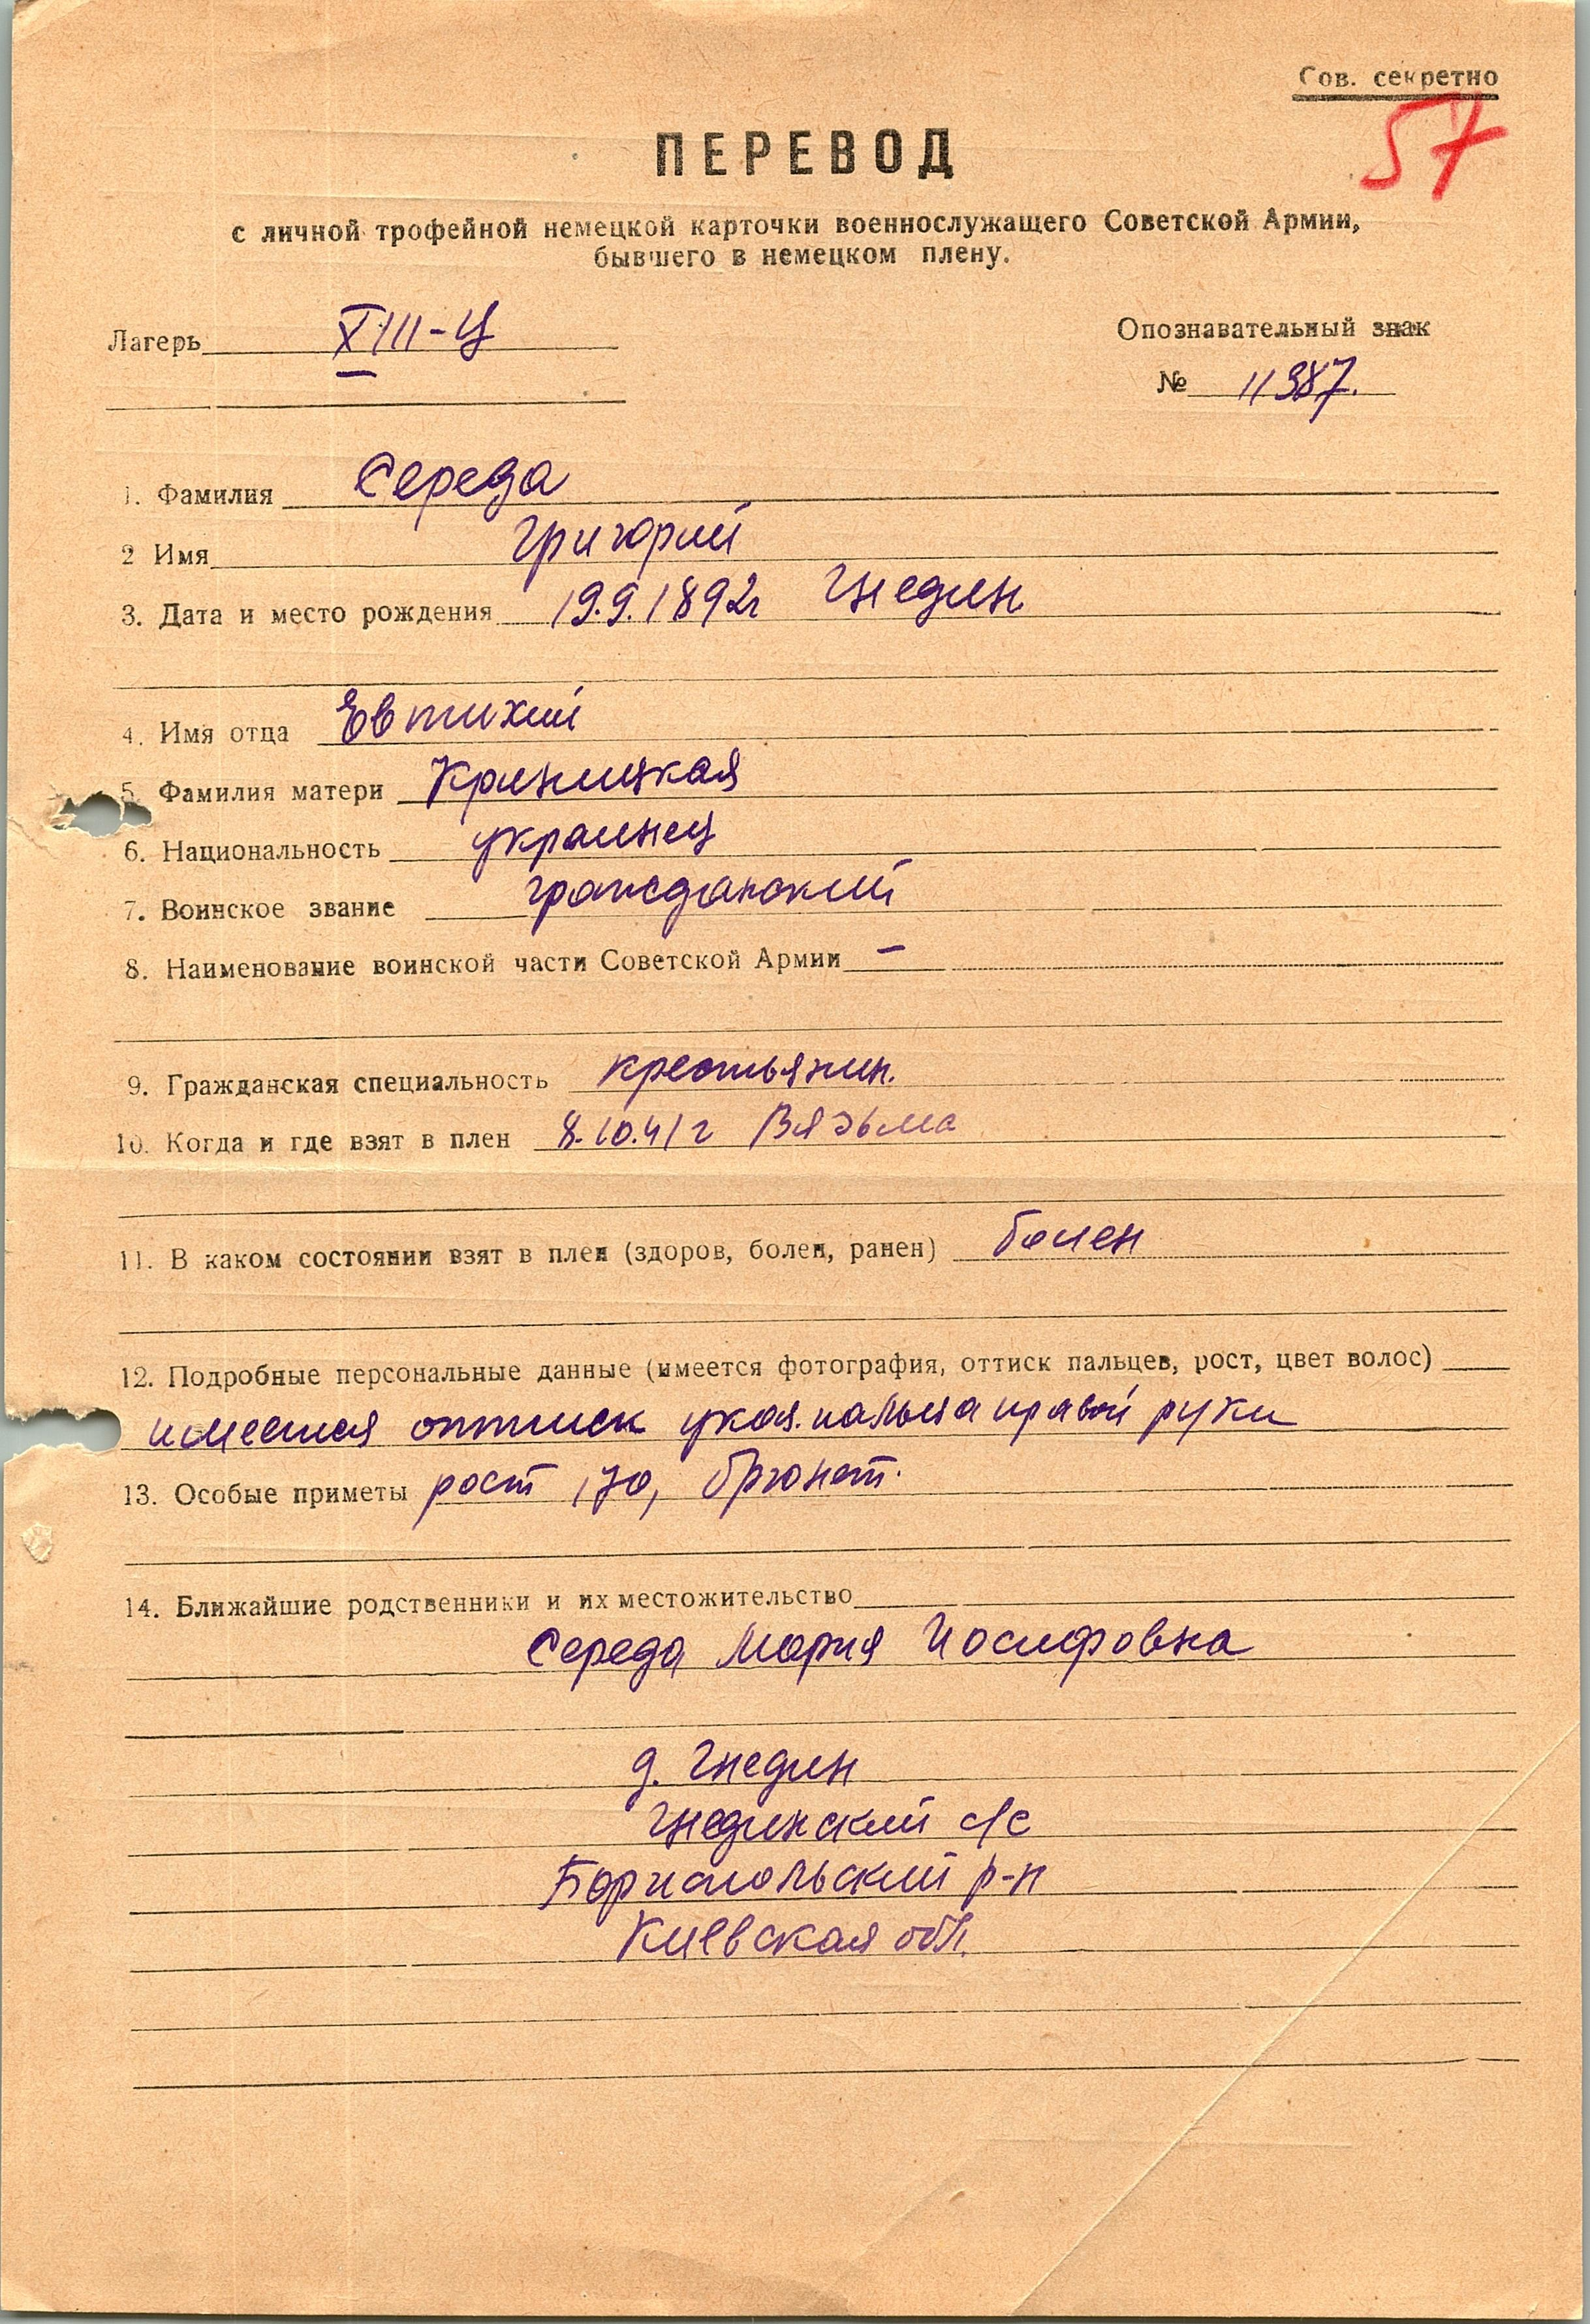 Сов. секретно
57
ПЕРЕВОД
с личной трофейной немецкой карточки военнослужащего Советской Армии,
бывшего в немецком плену.
Лагерь XIII-Ц
Опознавательный знак
№ 11387.
1. Фамилия Середа
2 Имя Григорий
3. Дата и место рождения 19.9.1892г Гнедин
4. Имя отца Евтихий
5. Фамилия матери Криницкая
6. Национальность украинец
7. Воинское звание гражданский
8. Наименование воинской части Советской Армии –
9. Гражданская специальность крестьянин.
10. Когда и где взят в плен 8.10.41г Вязьма
11. В каком состоянии взят в плен (здоров, болен, ранен) болен
12. Подробные персональные данные (имеется фотография, оттиск пальцев, рост, цвет волос)
имеется оттиск указ. пальца правой руки
13. Особые приметы рост 170, брюнет.
14. Ближайшие родственники и их местожительство
Середа Мария Иосифовна
д. Гнедин
Гнединский с/с
Бориспольский р-н
Киевская обл.